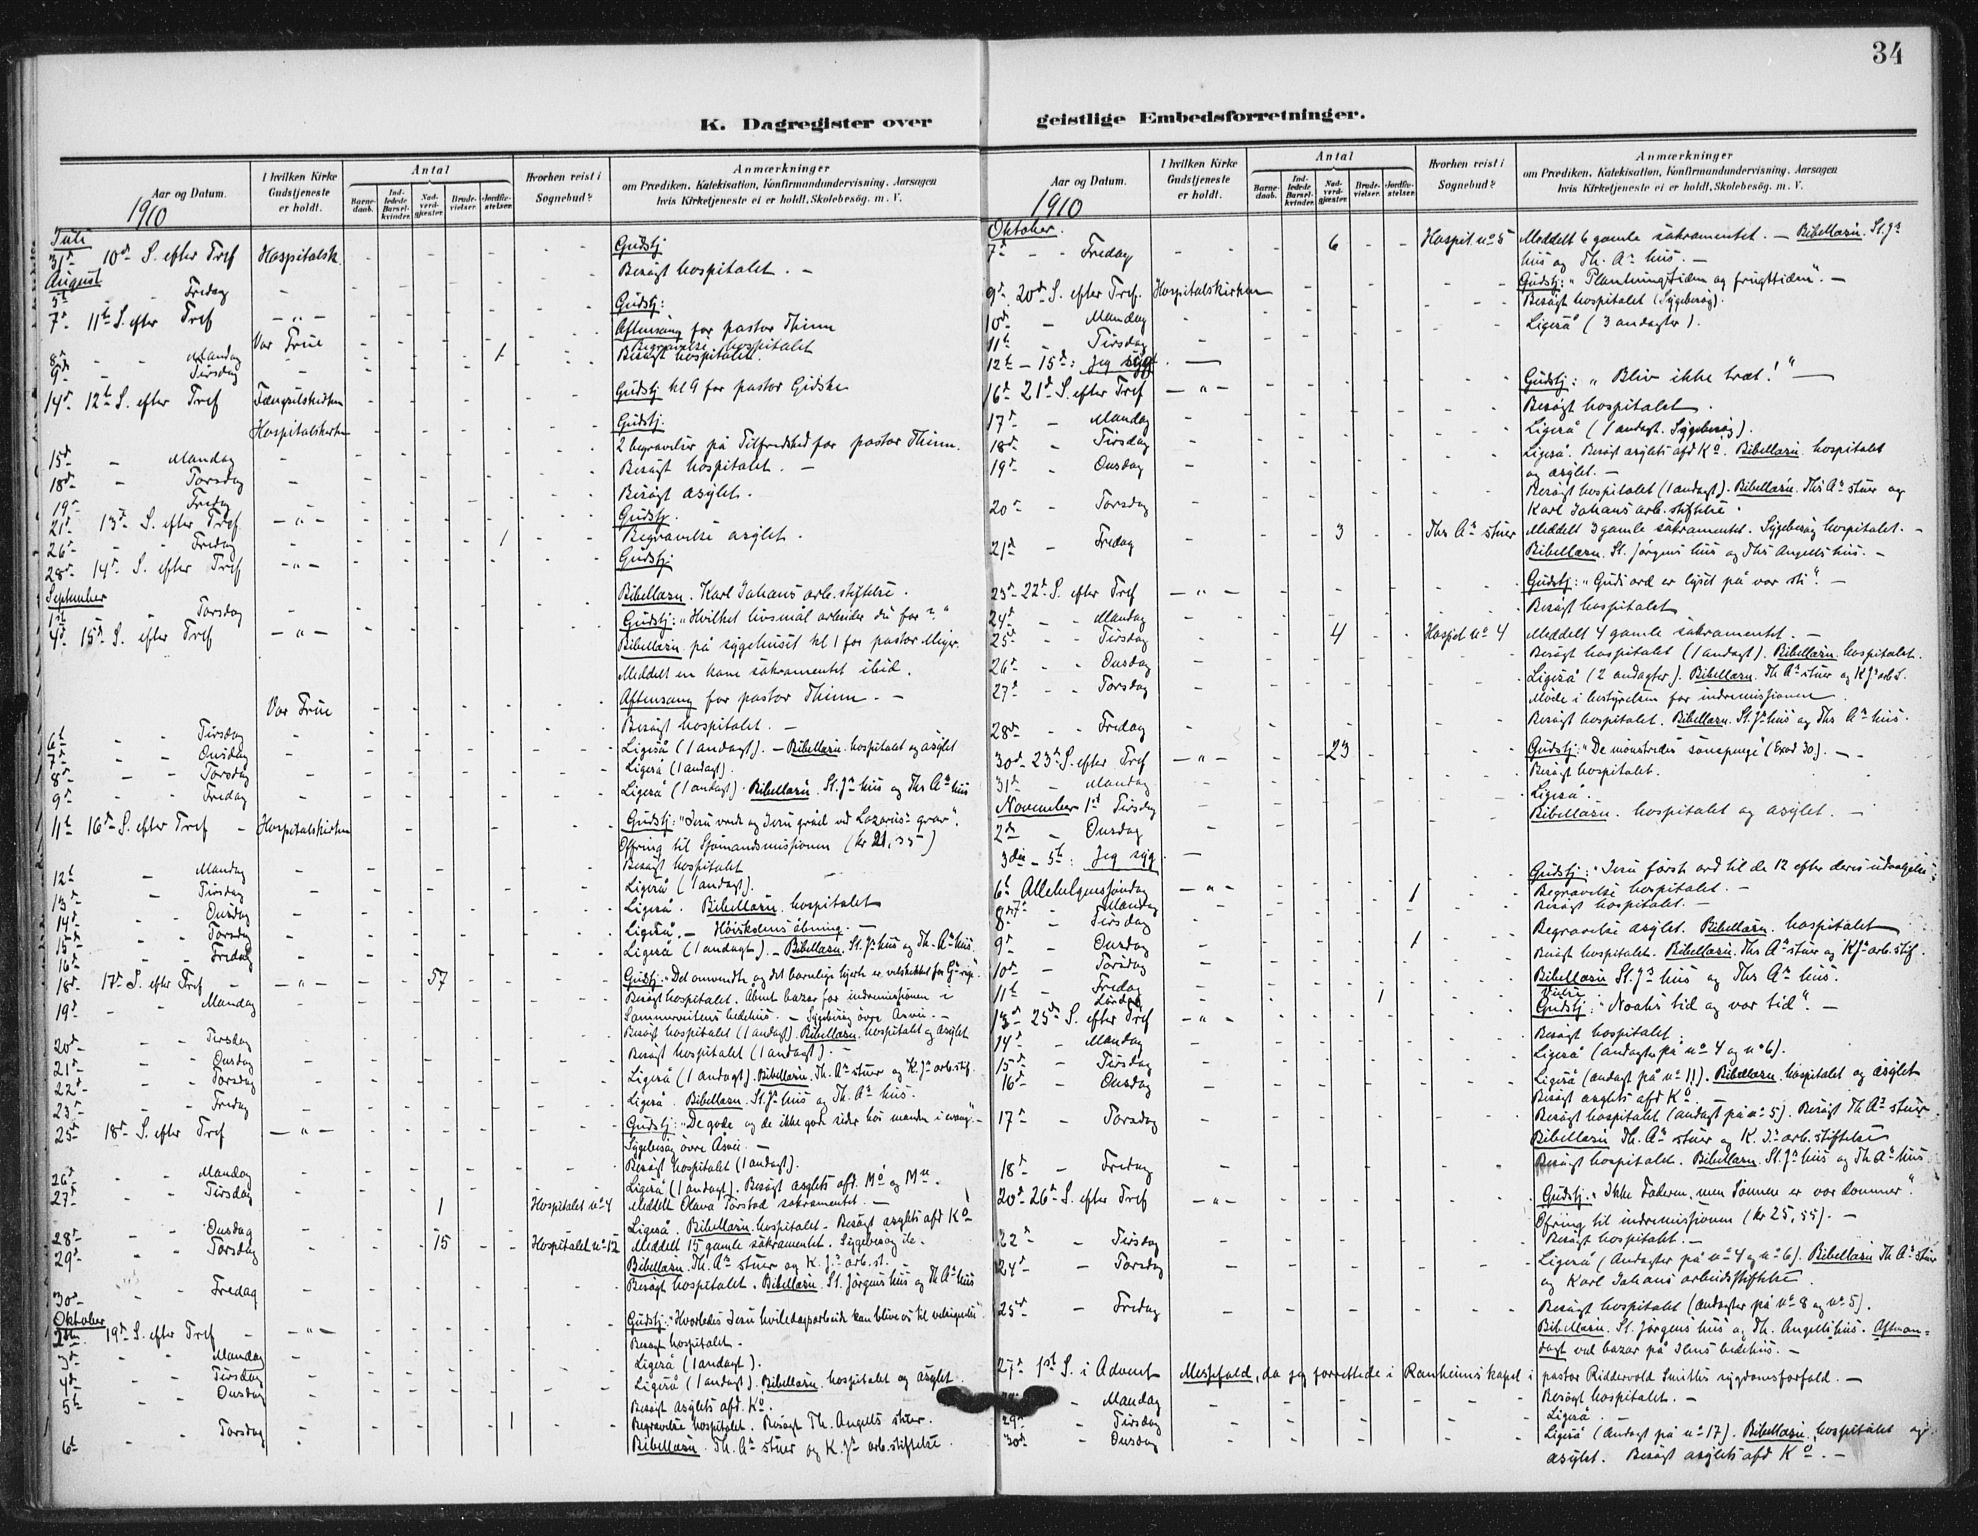 34
K. Dagregister over geistlige Embedsforretninger.
Aar og Datum.
I hvilken Kirke Gudstjeneste er holdt.
Antal
Barnedaab.
Indledede Barselkvinder.
Nadverdgjæster.
Brudevielser.
Jordfæstelser.
Hvorhen reist i Sognebud?
Anmærkninger
om Prædiken, Katekisation, Konfirmandundervisning, Aarsagen
hvis Kirketjeneste ei er holdt, Skolebesøg, m. V.
1910
Juli
31te 10de S. efter Tref Hospitalsk. Gudstj.
August
5te Fredag Besøgt hospitalet. —
7de 11te S. efter Tref — " — Gudstj:
Vor Frue Aftensang for pastor Thinn
8de Mandag 1 Begravelse hospitalet
9de Tirsdag Besøgt hospitalet.
14de 12te S. efter Tref Fængselskirken Gudstj kl 9 for pastor Gidske
Hospitalskirken Gudstj.
15de Mandag 2 begravelser på Tilfredshed for pastor Thinn.
18de Torsdag Besøgt hospitalet. —
19de Fredag Besøgt asylet.
21de 13de S. efter Tref — " — Gudstj.
26de Fredag 1 Begravelse asylet.
28de 14de S. efter Tref — " — Gudstj.
September
1ste Torsdag Bibellæsn. Karl Johans arb. stiftelse.
4de 15de S. efter Tref — " — Gudstj: "Hvilket livsmål arbeider du for?"
Bibellæsn. på sygehuset kl 1 for pastor Meyer.
Meddelt en kone sakramentet ibid.
Vor Frue Aftensang for pastor Thinn. —
6te Tirsdag Besøgt hospitalet. —
7de Onsdag Ligeså (1 andagt). — Bibellæsn. hospitalet og asylet
8de Torsdag Ligeså (1 andagt).
9de Fredag Ligeså (1 andagt). Bibellæsn. St. J.s hus og Ths A.s hus
11te 16de S. efter Tref Hospitalskirken Gudstj: "Jesu vrede og Jesu gråd ved Lazarus' grav".
Ofring til Sjømandsmissionen (kr 21,35)
12te Mandag Besøgt hospitalet
13de Tirsdag Ligeså (1 andagt).
14de Onsdag Ligeså. Bibellæsn. hospitalet
15de Torsdag Ligeså. — Høiskolens åbning. —
16de Fredag Ligeså (1 andagt). — Bibellæsn. St. J.s hus og Th. A.s hus.
18de 17de S. efter Tref — " — 57 Gudstj: "Det omvendte og det barnlige hjerte er velskikket for G.s rige".
19de Mandag Besøgt hospitalet. Åbnet bazar for indremissionen i
Sommerveitens bedehus. — Sygebesøg øvre Asvei. —
20de Tirsdag Besøgt hospitalet (1 andagt). Bibellæsn. hospitalet og asylet
21de Onsdag Besøgt hospitalet (1 andagt). —
22de Torsdag Ligeså (1 andagt). Bibellæsn. Th. A.s stuer og K. J.s arb.stif.
23de Fredag Ligeså. Bibellæsn. St. J.s hus og Th. A.s hus.
25de 18de S. efter Tref — " — Gudstj: "De gode og de ikke gode sider hos manden i evang." —
Sygebesøg øvre Asvei. —
26de Mandag Besøgt hospitalet (1 andagt).
27de Tirsdag Ligeså (1 andagt). Besøgt asylets afd. Mo og Mu.
1 Hospitalet no 4 Meddelt Olava Torstad sakramentet. —
28de Onsdag Ligeså. Bibellæsn. hospitalet. Besøgt asylets afd Ko
29de Torsdag 15 Hospitalet no 12 Meddelt 15 gamle sakramentet. Sygebesøg ile.
Bibellæsn. Th. A.s stuer og K. J.s arb. st. —
30te Fredag Besøgt hospitalet. Bibellæsn. St. Jørgens hus og Th A.s hus
Oktober
2den 19de S. efter Tref — " — Gudstj: "Hvorledes Jesu hviledagsarbeide kan blive os til velsignelse".
3de Mandag Besøgt hospitalet. —
4de Tirsdag Ligeså (1 andagt).
5te Onsdag Ligeså (1 andagt). Bibellæsn. hospitalet og asylet.
Besøgt asylets afd. Ko.
6te Torsdag 1 Begravelse hospitalet. Besøgt Th. Angells stuer.
Bibellæsn. Th. A.s stuer og K. J.s arb. stiftelse.
Aar og Datum.
I hvilken Kirke Gudstjeneste er holdt.
Antal
Barnedaab.
Indledede Barselkvinder.
Nadverdgjæster.
Brudevielser.
Jordfæstelser.
Hvorhen reist i Sognebud?
Anmærkninger
om Prædiken, Katekisation, Konfirmandundervisning, Aarsagen
hvis Kirketjeneste ei er holdt, Skolebesøg, m. V.
1910
Oktober.
7de Fredag 6 Hospit. no 5 Meddelt 6 gamle sakramentet. — Bibellæsn. St. J.s
hus og Th. A.s hus. —
9de 20de S. efter Tref. Hospitalskirken Gudstj: "Plantningstiden og frugttiden". —
10de Mandag Besøgt hospitalet (Sygebesøg).
11te Tirsdag Ligeså (3 andagter).
12te — 15de: Jeg syg. —
16de 21de S. efter Tref — " — Gudstj: "Bliv ikke træt!" —
17de Mandag Besøgt hospitalet.
18de Tirsdag Ligeså (1 andagt. Sygebesøg).
19de Onsdag Ligeså. Besøgt asylets afd Ko. Bibellæsn. hospitalet
og asylet. —
20de Torsdag Besøgt hospitalet (1 andagt). Bibellæsn. Ths A.s stuer og
Karl Johans arb. stiftelse.
21de Fredag 3 Ths A.s stuer Meddelt 3 gamle sakramentet. Sygebesøg hospitalet. —
Bibellæsn. St. Jørgens hus og Ths Angells hus. —
23de 22de S. efter Tref — " — Gudstj: "Guds ord er lyset på vor sti". —
24de Mandag Besøgt hospitalet
25de Tirsdag 4 Hospit no 4 Meddelt 4 gamle sakramentet. —
26de Onsdag Besøgt hospitalet (1 andagt). Bibellæsn. hospitalet.
27de Torsdag Ligeså (2 andagter). Bibellæsn. Th A.s stuer og K J.s arb S.
Møde i bestyrelsen for indremissionen.
28de Fredag Besøgt hospitalet. Bibellæsn. St. J.s hus og Ths A.s hus.
30te 23de S. efter Tref — " — 23 Gudstj: "De mønstredes sonepenge" (Exod 30). —
31te Mandag Besøgt hospitalet.
November 1ste Tirsdag Ligeså.
2den Onsdag Bibellæsn. hospitalet og asylet. —
3die — 5te: Jeg syg. —
6te Allehelgenssøndag — " — Gudstj: "Jesu første ord til de 12 efter deres udvælgelse".
7de Mandag 1 Begravelse hospitalet. —
8de Tirsdag Besøgt hospitalet. —
9de Onsdag 1 Begravelse asylet. Bibellæsn. hospitalet
10de Torsdag Besøgt hospitalet. Bibellæsn. Ths A.s stuer og K J.s arb. stif.
11te Fredag Bibellæsn St. J.s hus og Ths A.s hus.
Lørdag 1 Vielse
13de 25de S. efter Tref — " — Gudstj: "Noahs tid og vor tid". —
14de Mandag Besøgt hospitalet.
15de Tirsdag Ligeså (andagter på no 4 og no 6).
16de Onsdag Ligeså (andagt på no 11). Bibellæsn. hospitalet og asylet
Besøgt asylets afd Ko.
17de Torsdag Besøgt hospitalet (andagt på no 5). Besøgt Th A.s stuer
Bibellæsn Th. A.s stuer og K. J.s arb. stiftelse
18de Fredag Besøgt hospitalet. Bibellæsn. St. J.s hus og Th A.s hus
20de 26de S. efter Tref — " — Gudstj: "Ikke Faderen, men Sønnen er vor dommer".
Ofring til indremissionen (kr 25,55). —
22de Tirsdag Besøgt hospitalet. —
24de Torsdag Ligeså (Andagter på no 4 og no 6). Bibellæsn Th A.s stuer
og Karl Johans arbeidsstiftelse.
25de Fredag Besøgt hospitalet (andagter på no 8 og no 5).
Bibellæsn. St. Jørgens hus og Th. Angells hus. Aftenandagt
ved bazar på Ilens bedehus. —
27de 1ste S. i Advent Messefald, da jeg forrettede i Ranheims kapel i pastor Ridderveld Smitths sygdomsforfald. —
Mandag Besøgt hospitalet. —
29de Tirsdag Ligeså. —
30te Onsdag Ligeså (andagt på no 17). Bibellæsn. hospitalet og
asylet. Besøgt asylets afd Ko. —